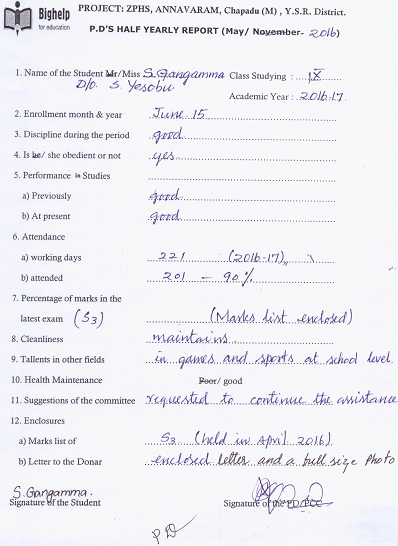 Bighelp
for education
PROJECT: ZPHS, ANNAVARAM, Chapadu (M) , Y.S.R. District.
P.D'S HALF YEARLY REPORT (May/ November- 2016)
1. Name of the Student Mr/Miss S.Gangamma Class Studying : IX
D/o. S. Yesobu
Academic Year : 2016-17.
2. Enrollment month & year June 15
3. Discipline during the period good
4. Is he/ she obedient or not yes
5. Performance in Studies
a) Previously good
b) At present good
6. Attendance
a) working days 221 (2016-17)
b) attended 201 - 90%
7. Percentage of marks in the
latest exam (S3) (Marks list enclosed)
8. Cleanliness maintains
9. Tallents in other fields in games and sports at school level
10. Health Maintenance Poor/ good
11. Suggestions of the committee requested to continue the assistance
12. Enclosures
a) Marks list of S3 (held in April 2016)
b) Letter to the Donar enclosed letter and a full size photo
S.Gangamma.
Signature of the Student Signature of the PD/PCC
PD